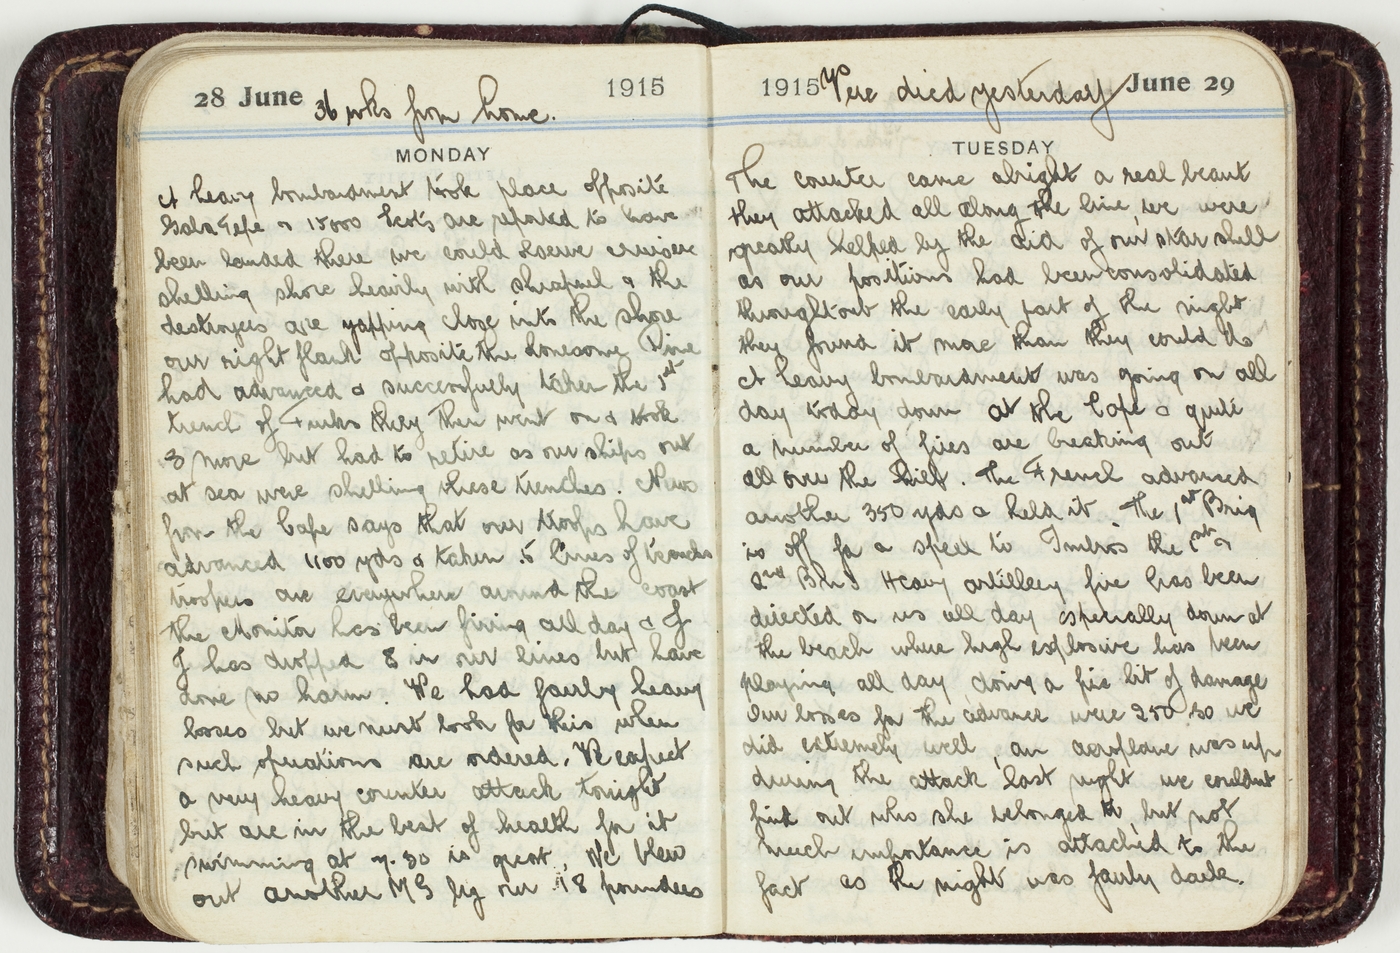 28 June 36 wks from home. 1915
MONDAY
A heavy bombardment took place opposite
Gaba Tepe & 15000 are reported to have
been landed there we could cruisers
shelling shore heavily with shrapnel & the
destroyers are yapping close into the shore
our right flank opposite the lonesome Pine
had advanced & successfully taken the 1st
trench of Turks they then went on & took
3 more but had to retire as our ships out
at sea were shelling these trenches. News
from the Cape says that our troops have
advanced 1100 yds & taken 5 lines of trenches
troopers are everywhere around the coast
the Monitor has been firing all day & J
J has dropped 8 in our lines but have
done no harm. We had fairly heavy
losses but we must look for this when
such operations are ordered. We expect
a very heavy counter attack tonight
but are in the best of health for it
swimming at 7.30 is great, We blew
out another MG by our 18 pounders
1915 died yesterday June 29
TUESDAY
The counter came alright a real beaut
they attacked all along the line, we were
greatly helped by the aid of our star shell
as our positions had been consolidated
throughout the early part of the night
they found it more than they could do
A heavy bombardment was going on all
day today down at the Cape & quite
a number of fires are breaking out
all over the Hill. The French advanced
another 350 yds & held it. The 1st Brig
is off for a spell to Imbros the 1st &
2nd Bns Heavy artillery fire has been
directed on us all day especially down at
the beach where high explosive has been
playing all day doing a fair bit of damage
Our losses for the advance were 250 so we
did extremely well, an aeroplane was up
during the attack last night we couldnt
find out who she belonged to, but not
much importance is attached to the
fact as the night was fairly dark.